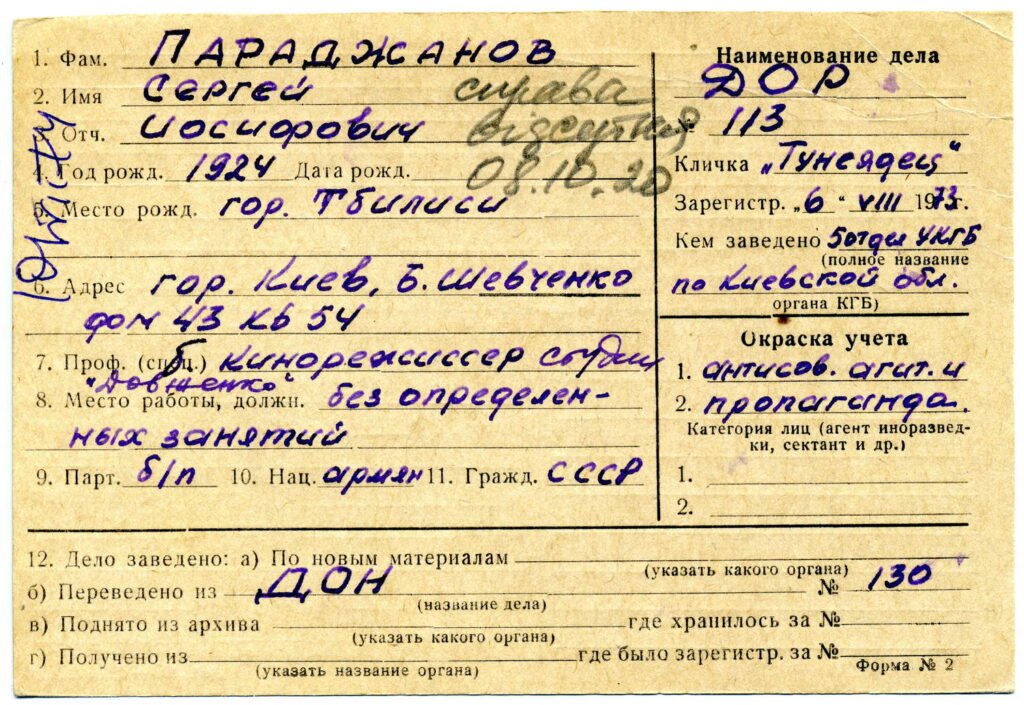 1. Фам. ПАРАДЖАНОВ
2. Имя Сергей
Отч. Иосифович
4. Год рожд. 1924 Дата рожд.
5. Место рожд. гор. Тбилиси
6. Адрес гор. Киев, Б. Шевченко
дом 43 кв 54
7. Проф. (спец.) б. Кинорежиссер студии
"Довженко"
8. Место работы, должн. без определен-
ных занятий
9. Парт. б/п 10. Нац. армян 11. Гражд. СССР
справа
відсутня
08.10.20
Наименование дела
ДОР
№ 113
Кличка „Тунеядец"
Зарегистр. „6" VIII 1973 г.
Кем заведено 5 отдел УКГБ
(полное название
по Киевской обл.
органа КГБ)
Окраска учета
1. антисов. агит. и
2. пропаганда.
Категория лиц (агент иноразвед-
ки, сектант и др.)
1.
2.
12. Дело заведено: а) По новым материалам
(указать какого органа)
б) Переведено из ДОН № 130
(название дела)
в) Поднято из архива где хранилось за №
(указать какого органа)
г) Получено из где было зарегистр. за №
(указать название органа)
Форма № 2